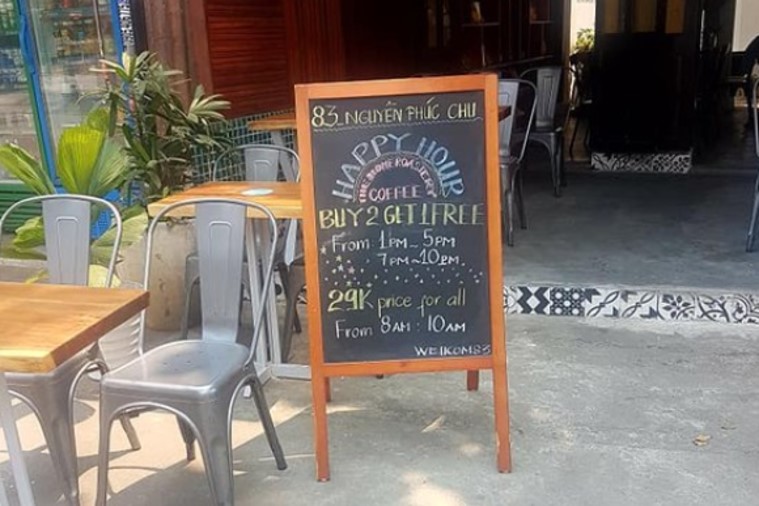 83. NGUYỄN PHÚC CHU
HAPPY HOUR
THE HOME ROASTERY
COFFEE
BUY 2 GET 1 FREE
From 1PM ~ 5PM
7PM ~ 10PM
29K price for all
From 8AM : 10AM
WELKOM83